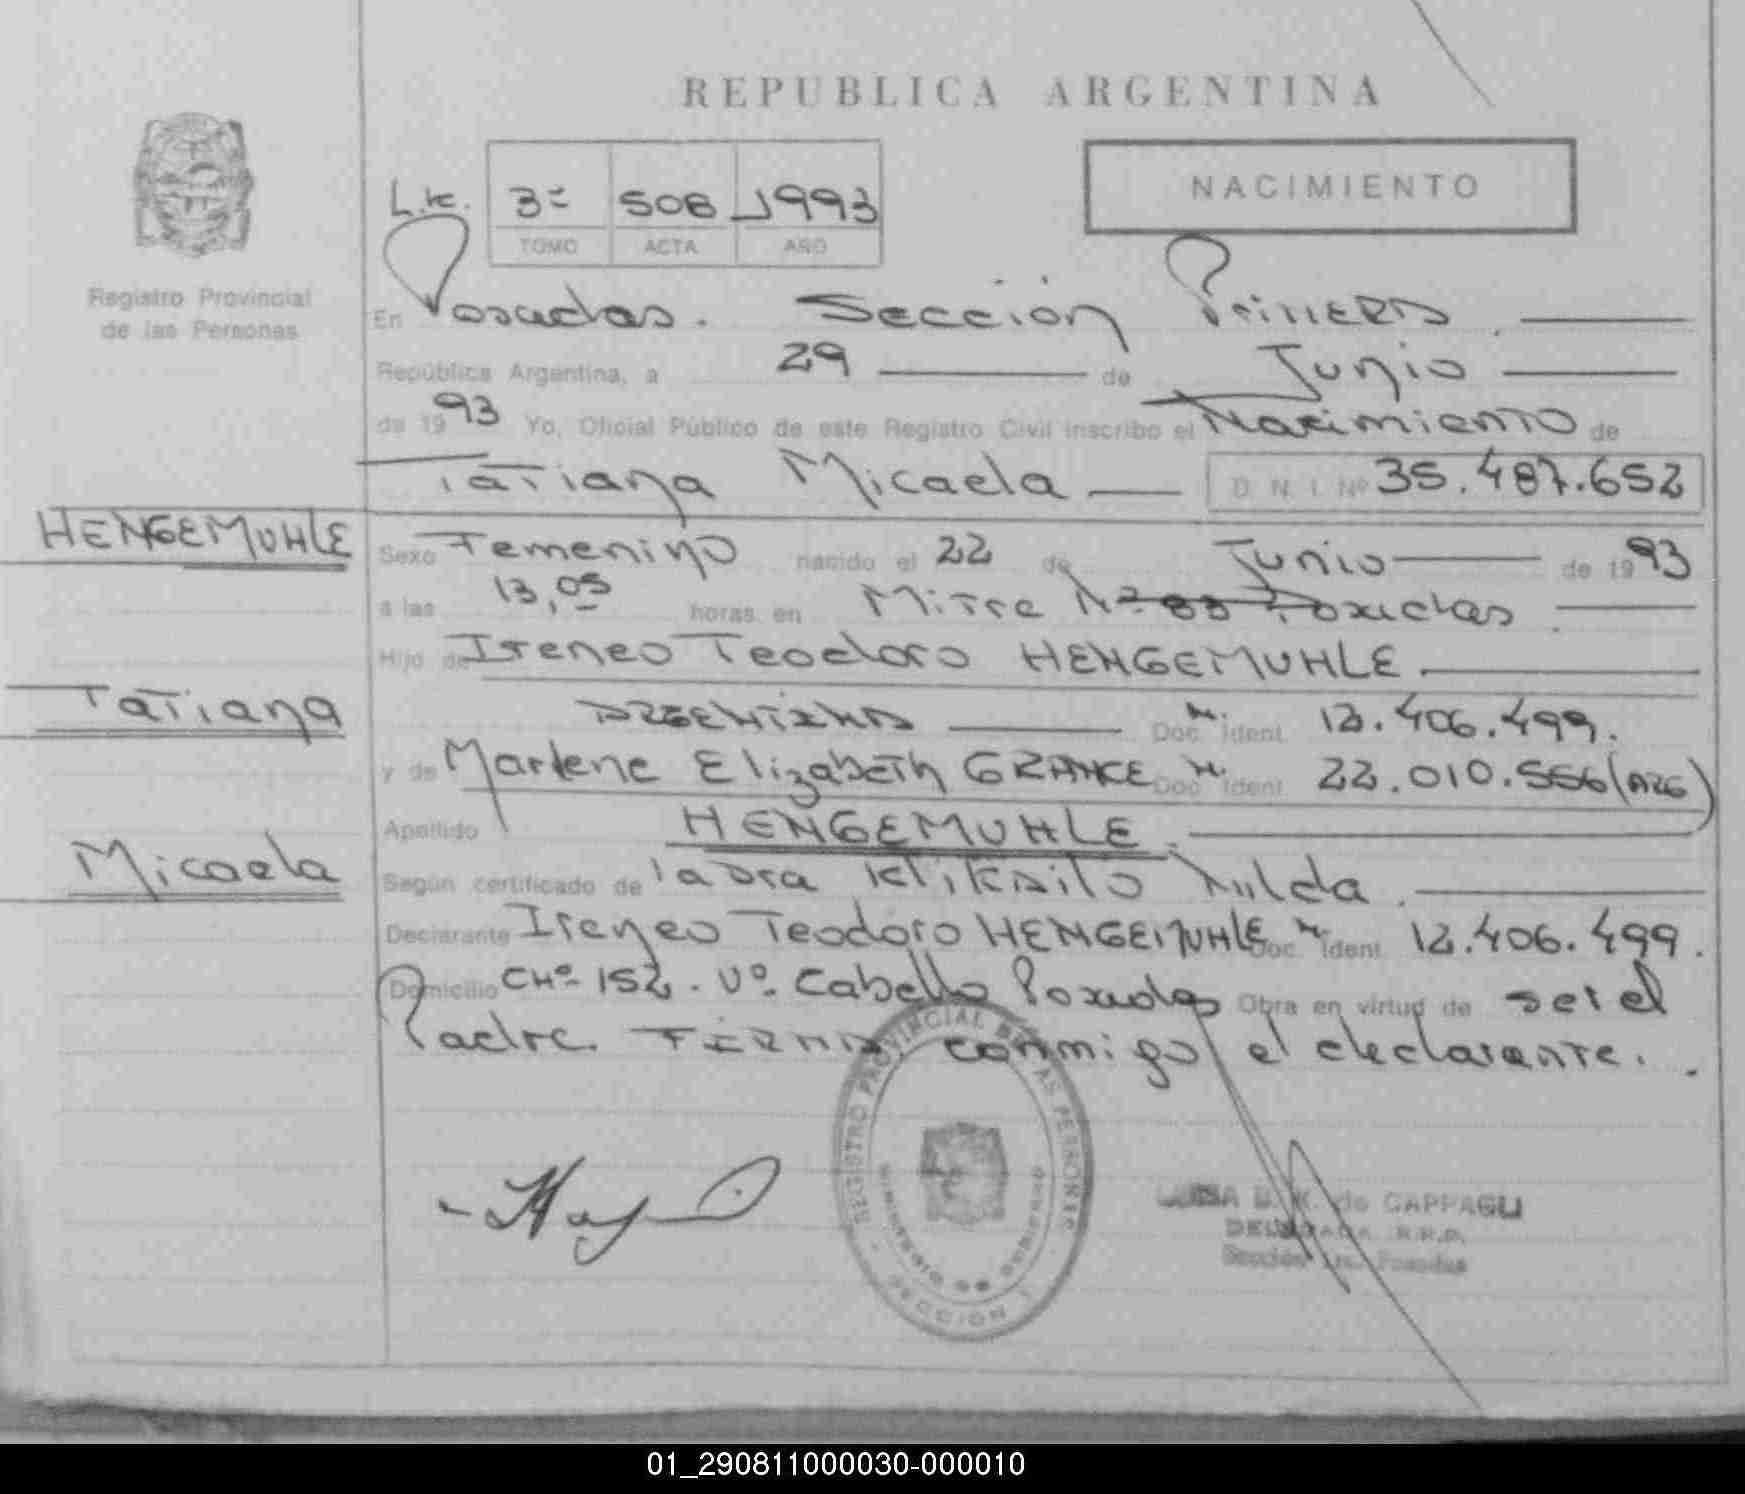 REPUBLICA ARGENTINA
NACIMIENTO
L. 1c. 3º 508 1993
TOMO ACTA AÑO
Registro Provincial
de las Personas
En Posadas. Sección Primera.
República Argentina, a 29 de Junio
de 1993 Yo, Oficial Público de este Registro Civil inscribo el Nacimiento de
Tatiana Micaela D. N. I. Nº 35.487.652
HENGEMUHLE
Sexo Femenino nacido el 22 de Junio de 1993
a las 13,05 horas en Mitre Nº 83 Posadas
Hijo de Ireneo Teodoro HENGEMUHLE
Tatiana
ARGENTINA Doc. Ident. 12.406.499.
y de Marlene Elizabeth GRANCE Doc. Ident. 22.010.556 (ARG)
Apellido HENGEMUHLE.
Micaela
Según certificado de la Dra Nilda.
Declarante Ireneo Teodoro HENGEMUHLE Doc. Ident. 12.406.499.
Domicilio CHº 152. Vº. Cabello Posadas Obra en virtud de ser el
Padre. FIRMA conmigo el declarante.
REGISTRO PROVINCIAL DE LAS PERSONAS
MINISTERIO DE GOBIERNO
SECCION 1
LUISA B. K. de CAPPAGLI
DELEGADA R.R.P.
Sección 1ra. Posadas
01_290811000030-000010